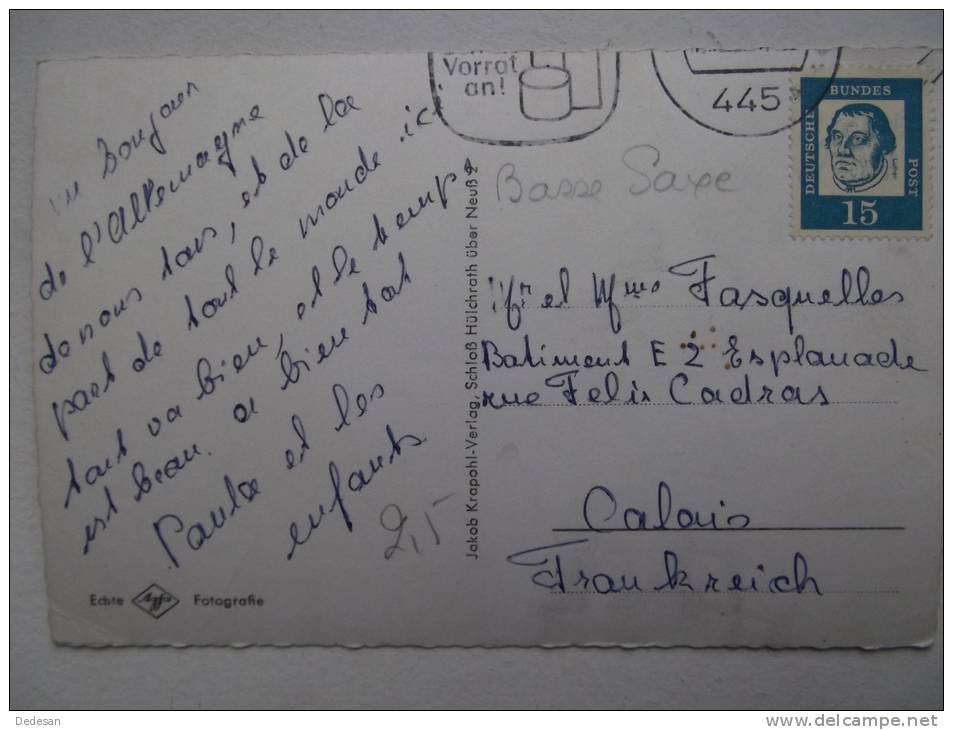 un Bonjour
de l'Allemagne
de nous tous, et de la
part de tout le monde ici
tout va bien, et le temps
est beau. a bien tot
Paula et les
enfants
2,5
Echte Agfa Fotografie
Jakob Krapohl-Verlag, Schloß Hülchrath über Neuß 2
Vorrat
an!
445
DEUTSCHE BUNDESPOST
15
Basse Saxe
Mr et Mme Fasquelles
Batiment E 2 Esplanade
rue Felix Cadras
Calais
Frankreich
Dedesan
www.delcampe.net